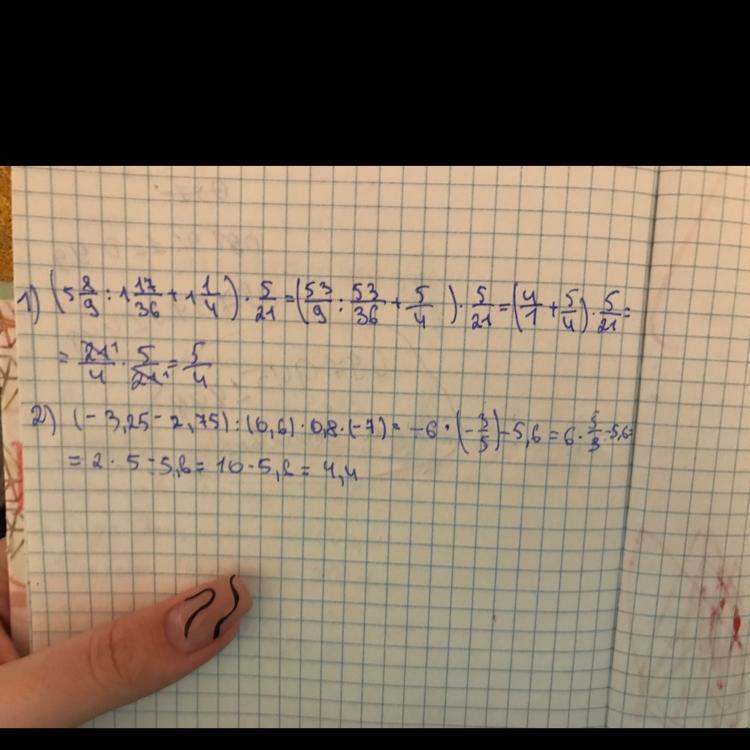 1) (5 8/9 : 1 17/36 + 1 1/4) · 5/21 = (53/9 : 53/36 + 5/4) · 5/21 = (4/1 + 5/4) · 5/21 =
= 21¹/4 · 5/21¹ = 5/4
2) (-3,25 - 2,75) : (0,6) · 0,8 · (-7) = -6 · (-3/5) - 5,6 = 6 · 5/3 - 5,6 =
= 2 · 5 - 5,6 = 10 - 5,6 = 4,4